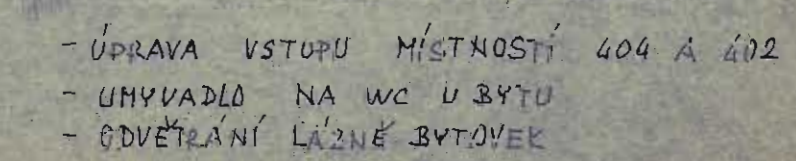 - ÚPRAVA VSTUPU MÍSTNOSTÍ 404 A 402
- UMYVADLO NA WC U BYTU
- ODVĚTRÁNÍ LÁZNĚ BYTOVEK